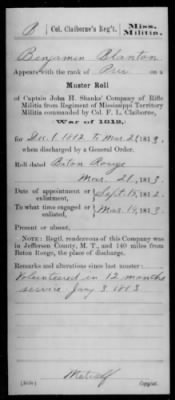 B | Col. Claiborne's Reg't, | Miss. Militia.
Benjamin Blanton
Appears with the rank of Priv on a
Muster Roll
of Captain John H. Shanks' Company of Rifle
Militia from Regiment of Mississippi Territory
Militia commanded by Col. F. L. Claiborne,
War of 1812,
for Dec. 1, 1812 to Mar. 28, 1813,
when discharged by a General Order.
Roll dated Baton Rouge
Mar. 28, 1813.
Date of appointment or enlistment, Sept. 15, 1812
To what time engaged or enlisted, Mar. 14, 1813
Present or absent,
NOTE: Regtl. rendezvous of this Company was
in Jefferson County, M. T., and 140 miles from
Baton Rouge, the place of discharge.
Remarks and alterations since last muster:
Volunteered in 12 months
service Jany 3 1813
Metcalf
Copyist.